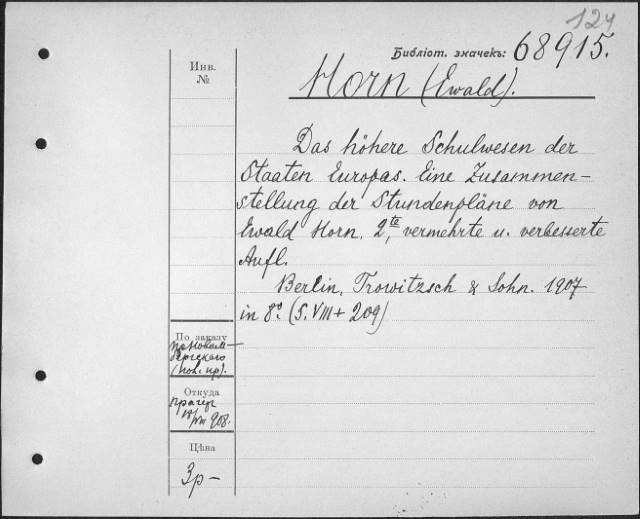 124
Библіот. значекъ: 68915.
Инв.
№
Horn (Ewald).
Das höhere Schulwesen der
Staaten Europas. Eine Zusammen-
stellung der Stundenpläne von
Ewald Horn. 2te, vermehrte u. verbesserte
Aufl.
Berlin, Trowitzsch & Sohn. 1907
in 8º. (S. VIII + 209)
По заказу
Откуда
908.
Цѣна
3р-